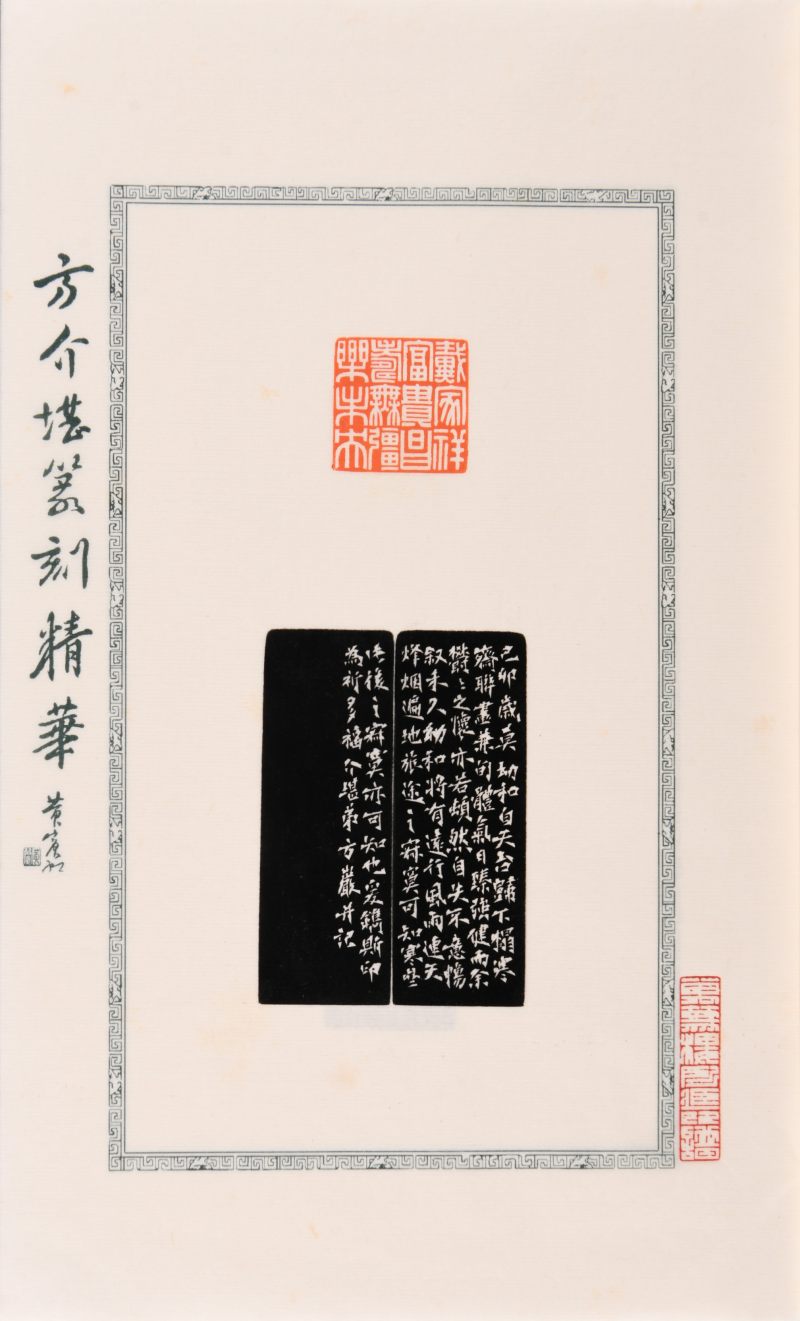 戴家祥
富貴昌
壽無彊
樂未央
己卯歲莫幼和自天台歸下榻寒
齋聯兼旬體氣日臻強健而余
鬱〻之懷亦若頓然自失不意暢
叙未久幼和將有遠行風雨連天
烽烟遍地旅途之寂寞可知寒齋
此後之寂寞亦可知也爰鐫斯印
為祈多福介堪弟方巖并記
方介堪篆刻精華
黃賓虹